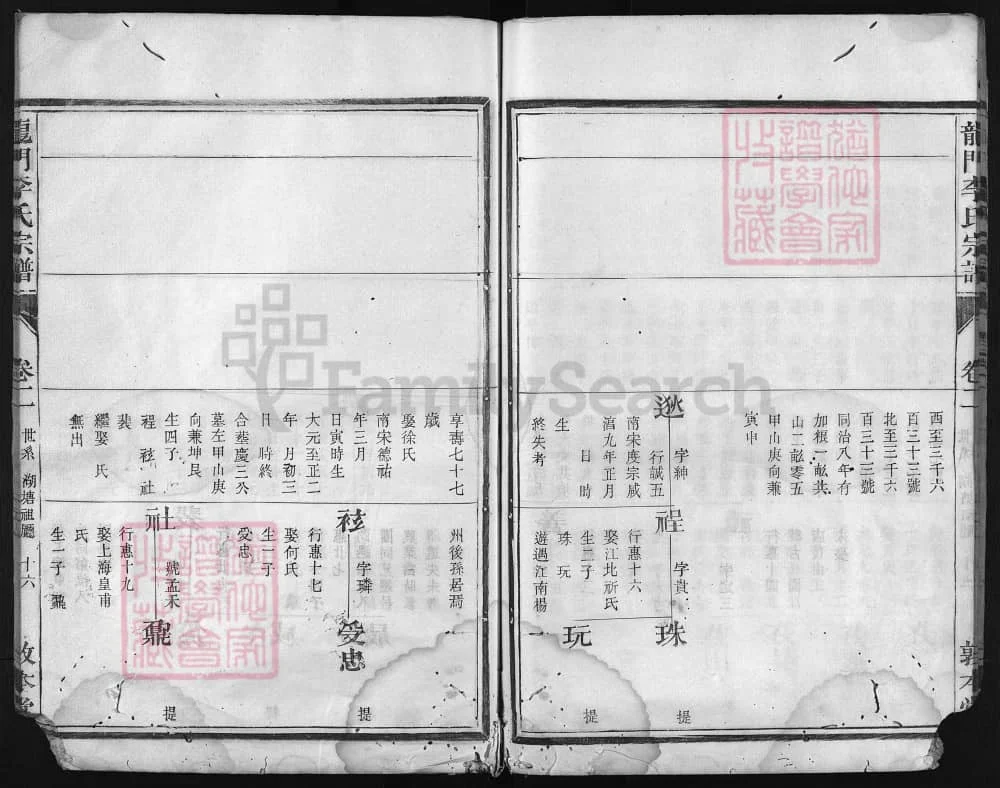 龍門李氏宗譜
卷二
敦本堂
西至三千六
百三十三號
北至三千六
百三十三號
同治八年有
加根一畝共
山二畝零五
甲山庚向兼
寅申
逖
字紳
行誠五
南宋度宗咸
淳九年正月
日 時
生
終失考
程
字貴一
行惠十六
娶江北祈氏
生二子
珠 玩
遊遇江南楊
珠
提
玩
提
享壽七十七
歲
娶徐氏
南宋德祐
年三月
日寅時生
大元至正二
年 月初三
日 時終
合塟慶三公
墓左甲山庚
向兼坤艮
生四子
程 祾 社
裴
繼娶 氏
無出
州後孫居焉
字璘
行惠十七
娶何氏
生一子
受忠
受忠
提
社
號孟禾
行惠十九
娶上海皇甫
氏
生一子 鼐
鼐
提
龍門李氏宗譜
卷二
世系 湖塘祖廳
十六
敦本堂
猶他家
譜學會
收藏
猶他家
譜學會
收藏
FamilySearch